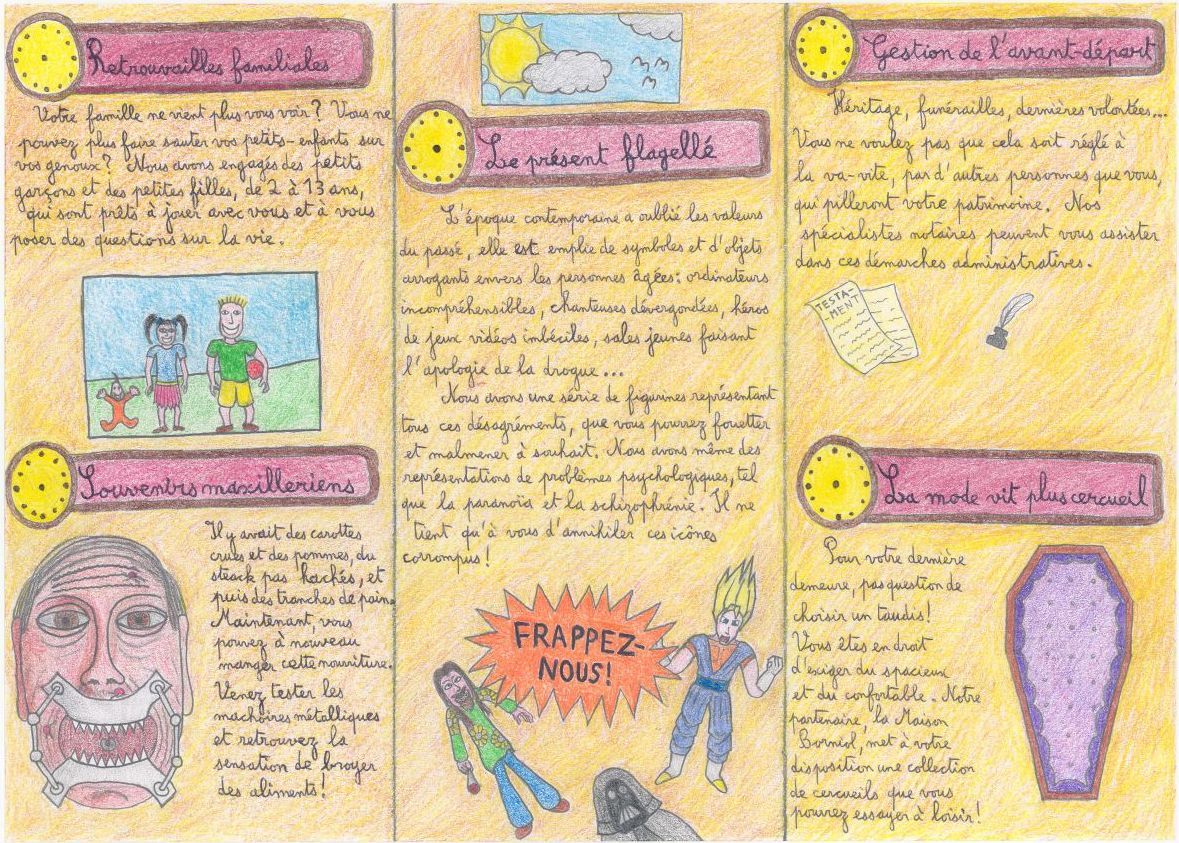 Retrouvailles familiales
Votre famille ne vient plus vous voir? Vous ne
pouvez plus faire sauter vos petits-enfants sur
vos genoux? Nous avons engagés des petits
garçons et des petites filles, de 2 à 13 ans,
qui sont prêts à jouer avec vous et à vous
poser des questions sur la vie.
Souvenirs maxilleriens
Il y avait des carottes
crues et des pommes, du
steack pas hachés, et
puis des tranches de pain.
Maintenant, vous
pouvez à nouveau
manger cette nourriture.
Venez tester les
machoires métalliques
et retrouvez la
sensation de broyer
des aliments!
Le présent flagellé
L'époque contemporaine a oublié les valeurs
du passé, elle est emplie de symboles et d'objets
arrogants envers les personnes âgées: ordinateurs
incompréhensibles, chanteuses dévergondées, héros
de jeux vidéos imbéciles, sales jeunes faisant
l'apologie de la drogue...
Nous avons une série de figurines représentant
tous ces désagréments, que vous pourrez fouetter
et malmener à souhait. Nous avons même des
représentations de problèmes psychologiques, tel
que la paranoïa et la schizophrénie. Il ne
tient qu'à vous d'annihiler ces icônes
corrompus!
FRAPPEZ-
NOUS!
Gestion de l'avant-départ
Héritage, funérailles, dernières volontées...
Vous ne voulez pas que cela soit réglé à
la va-vite, par d'autres personnes que vous,
qui pilleront votre patrimoine. Nos
spécialistes notaires peuvent vous assister
dans ces démarches administratives.
TESTA-
MENT
La mode vit plus cercueil
Pour votre dernière
demeure, pas question de
choisir un taudis!
Vous êtes en droit
d'exiger du spacieux
et du confortable. Notre
partenaire, la Maison
Borniol, met à votre
disposition une collection
de cercueils que vous
pourrez essayer à loisir!